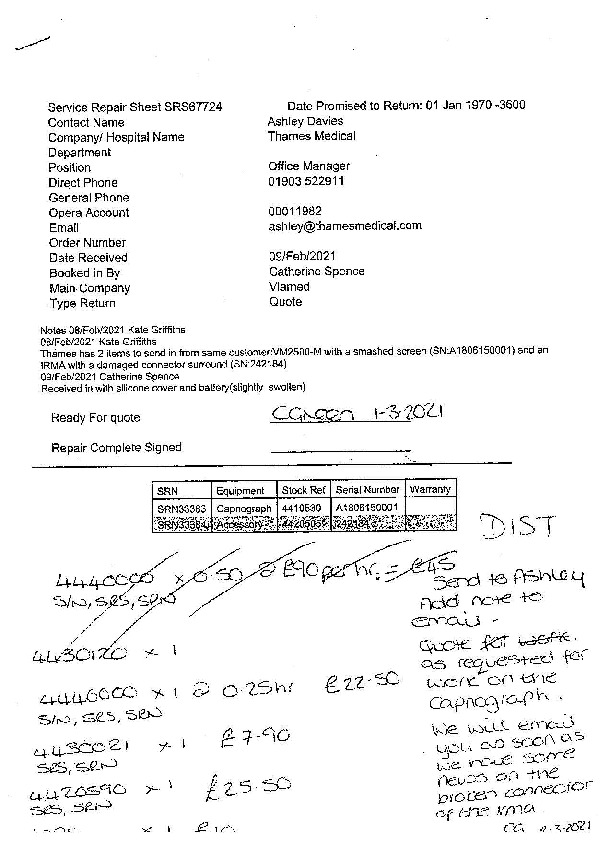 Service Repair Sheet SRS67724 Date Promised to Return: 01 Jan 1970 -3600
Contact Name Ashley Davies
Company/ Hospital Name Thames Medical
Department
Position Office Manager
Direct Phone 01903 522911
General Phone
Opera Account 00011982
Email ashley@thamesmedical.com
Order Number
Date Received 09/Feb/2021
Booked in By Catherine Spence
Main Company Viamed
Type Return Quote
Notes 08/Feb/2021 Kate Griffiths
08/Feb/2021 Kate Griffiths
Thames has 2 items to send in from same customer:VM2500-M with a smashed screen (SN:A1806150001) and an
IRMA with a damaged connector surround (SN:242184)
09/Feb/2021 Catherine Spence
Received in with silicone cover and battery(slightly swollen)
Ready For quote CGreen 1-3-2021
Repair Complete Signed
SRN Equipment Stock Ref Serial Number Warranty
SRN33383 Capnograph 4410530 A1806150001
Accessory 242184
DIST
4440000 x 0.50 @ £90 per hr. = £45
S/N, SRS, SRN
Send to Ashley
Add note to
email -
4430120 x 1
Quote for work.
as requested for
work on the
Capnograph.
4440000 x 1 @ 0.25hr £22.50
S/N, SRS, SRN
4430021 x 1 £7.90
SRS, SRN
4420590 x 1 £25.50
SRS, SRN
We will email
you as soon as
we have some
news on the
broken connector
of the irma
CG 4-3-2021
x 1 £10